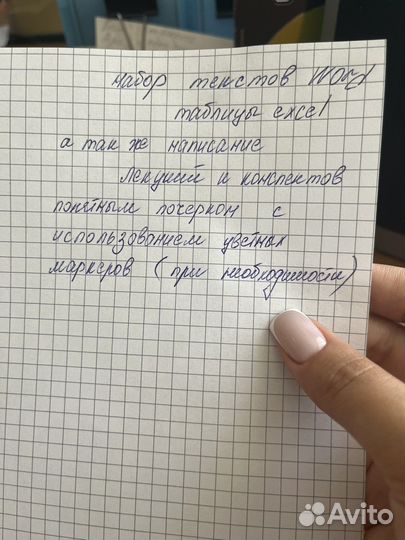 набор текстов Word
таблицы excel
а так же написание
лекций и конспектов
понятным почерком с
использованием цветных
маркеров (при необходимости)
Avito